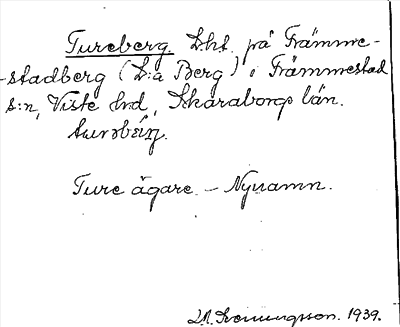 Tureberg. Lht. på Främme-
-stadberg (L:a Berg) i Främmestad
s:n, Viste hrd, Skaraborgs län.
Ture ägare. – Nynamn.
1939.